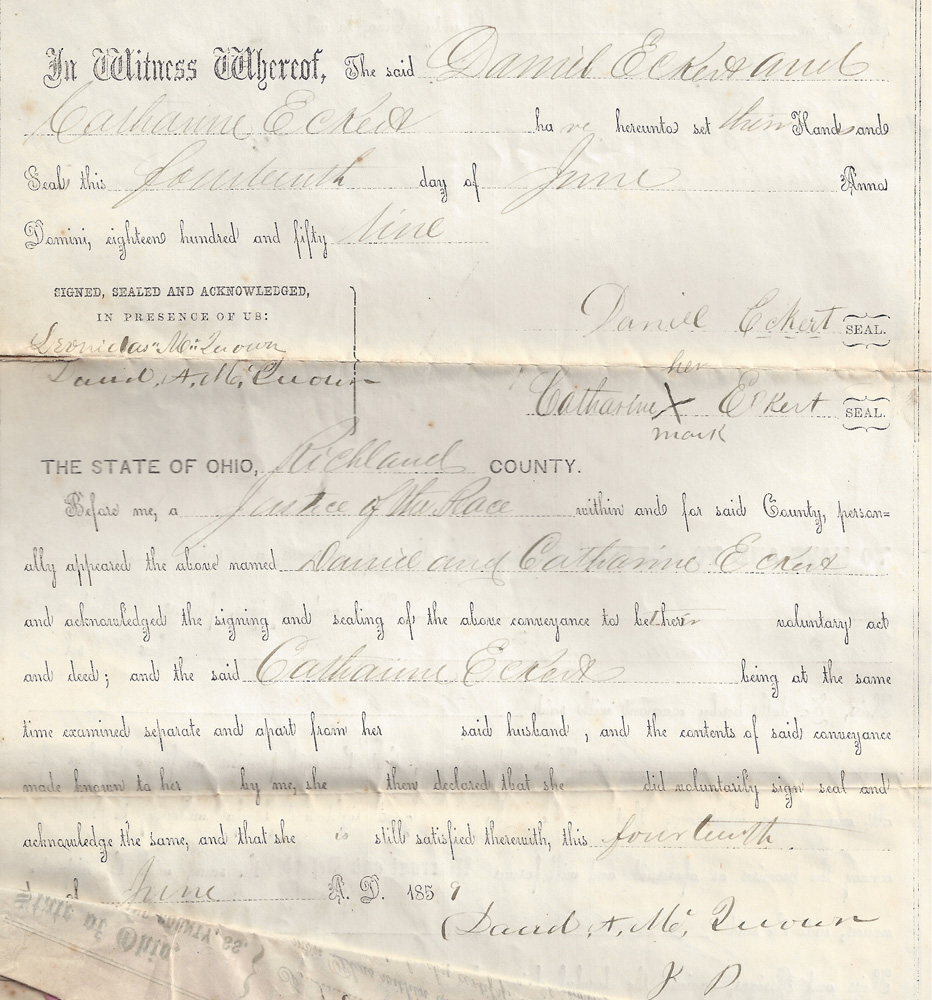 In Witness Whereof, The said Daniel Eckert and
Catharine Eckert have hereunto set their Hands and
Seals this fourteenth day of June Anno
Domini, eighteen hundred and fifty nine
SIGNED, SEALED AND ACKNOWLEDGED,
IN PRESENCE OF US:
Leonidas McQuown
David A. Mc, Quown
Daniel Eckert SEAL.
her
Catharine X Eckert SEAL.
mark
THE STATE OF OHIO, Richland COUNTY.
Before me, a Justice of the Peace within and for said County, person=
ally appeared the above named Daniel and Catharine Eckert
and acknowledged the signing and sealing of the above conveyance to be their voluntary act
and deed; and the said Catharine Eckert being at the same
time examined separate and apart from her said husband, and the contents of said conveyance
made known to her by me, she then declared that she did voluntarily sign seal and
acknowledge the same, and that she is still satisfied therewith, this fourteenth
June A. D. 1859
David A. Mc, Quown
J P
State of Ohio,
COUNTY, SS.